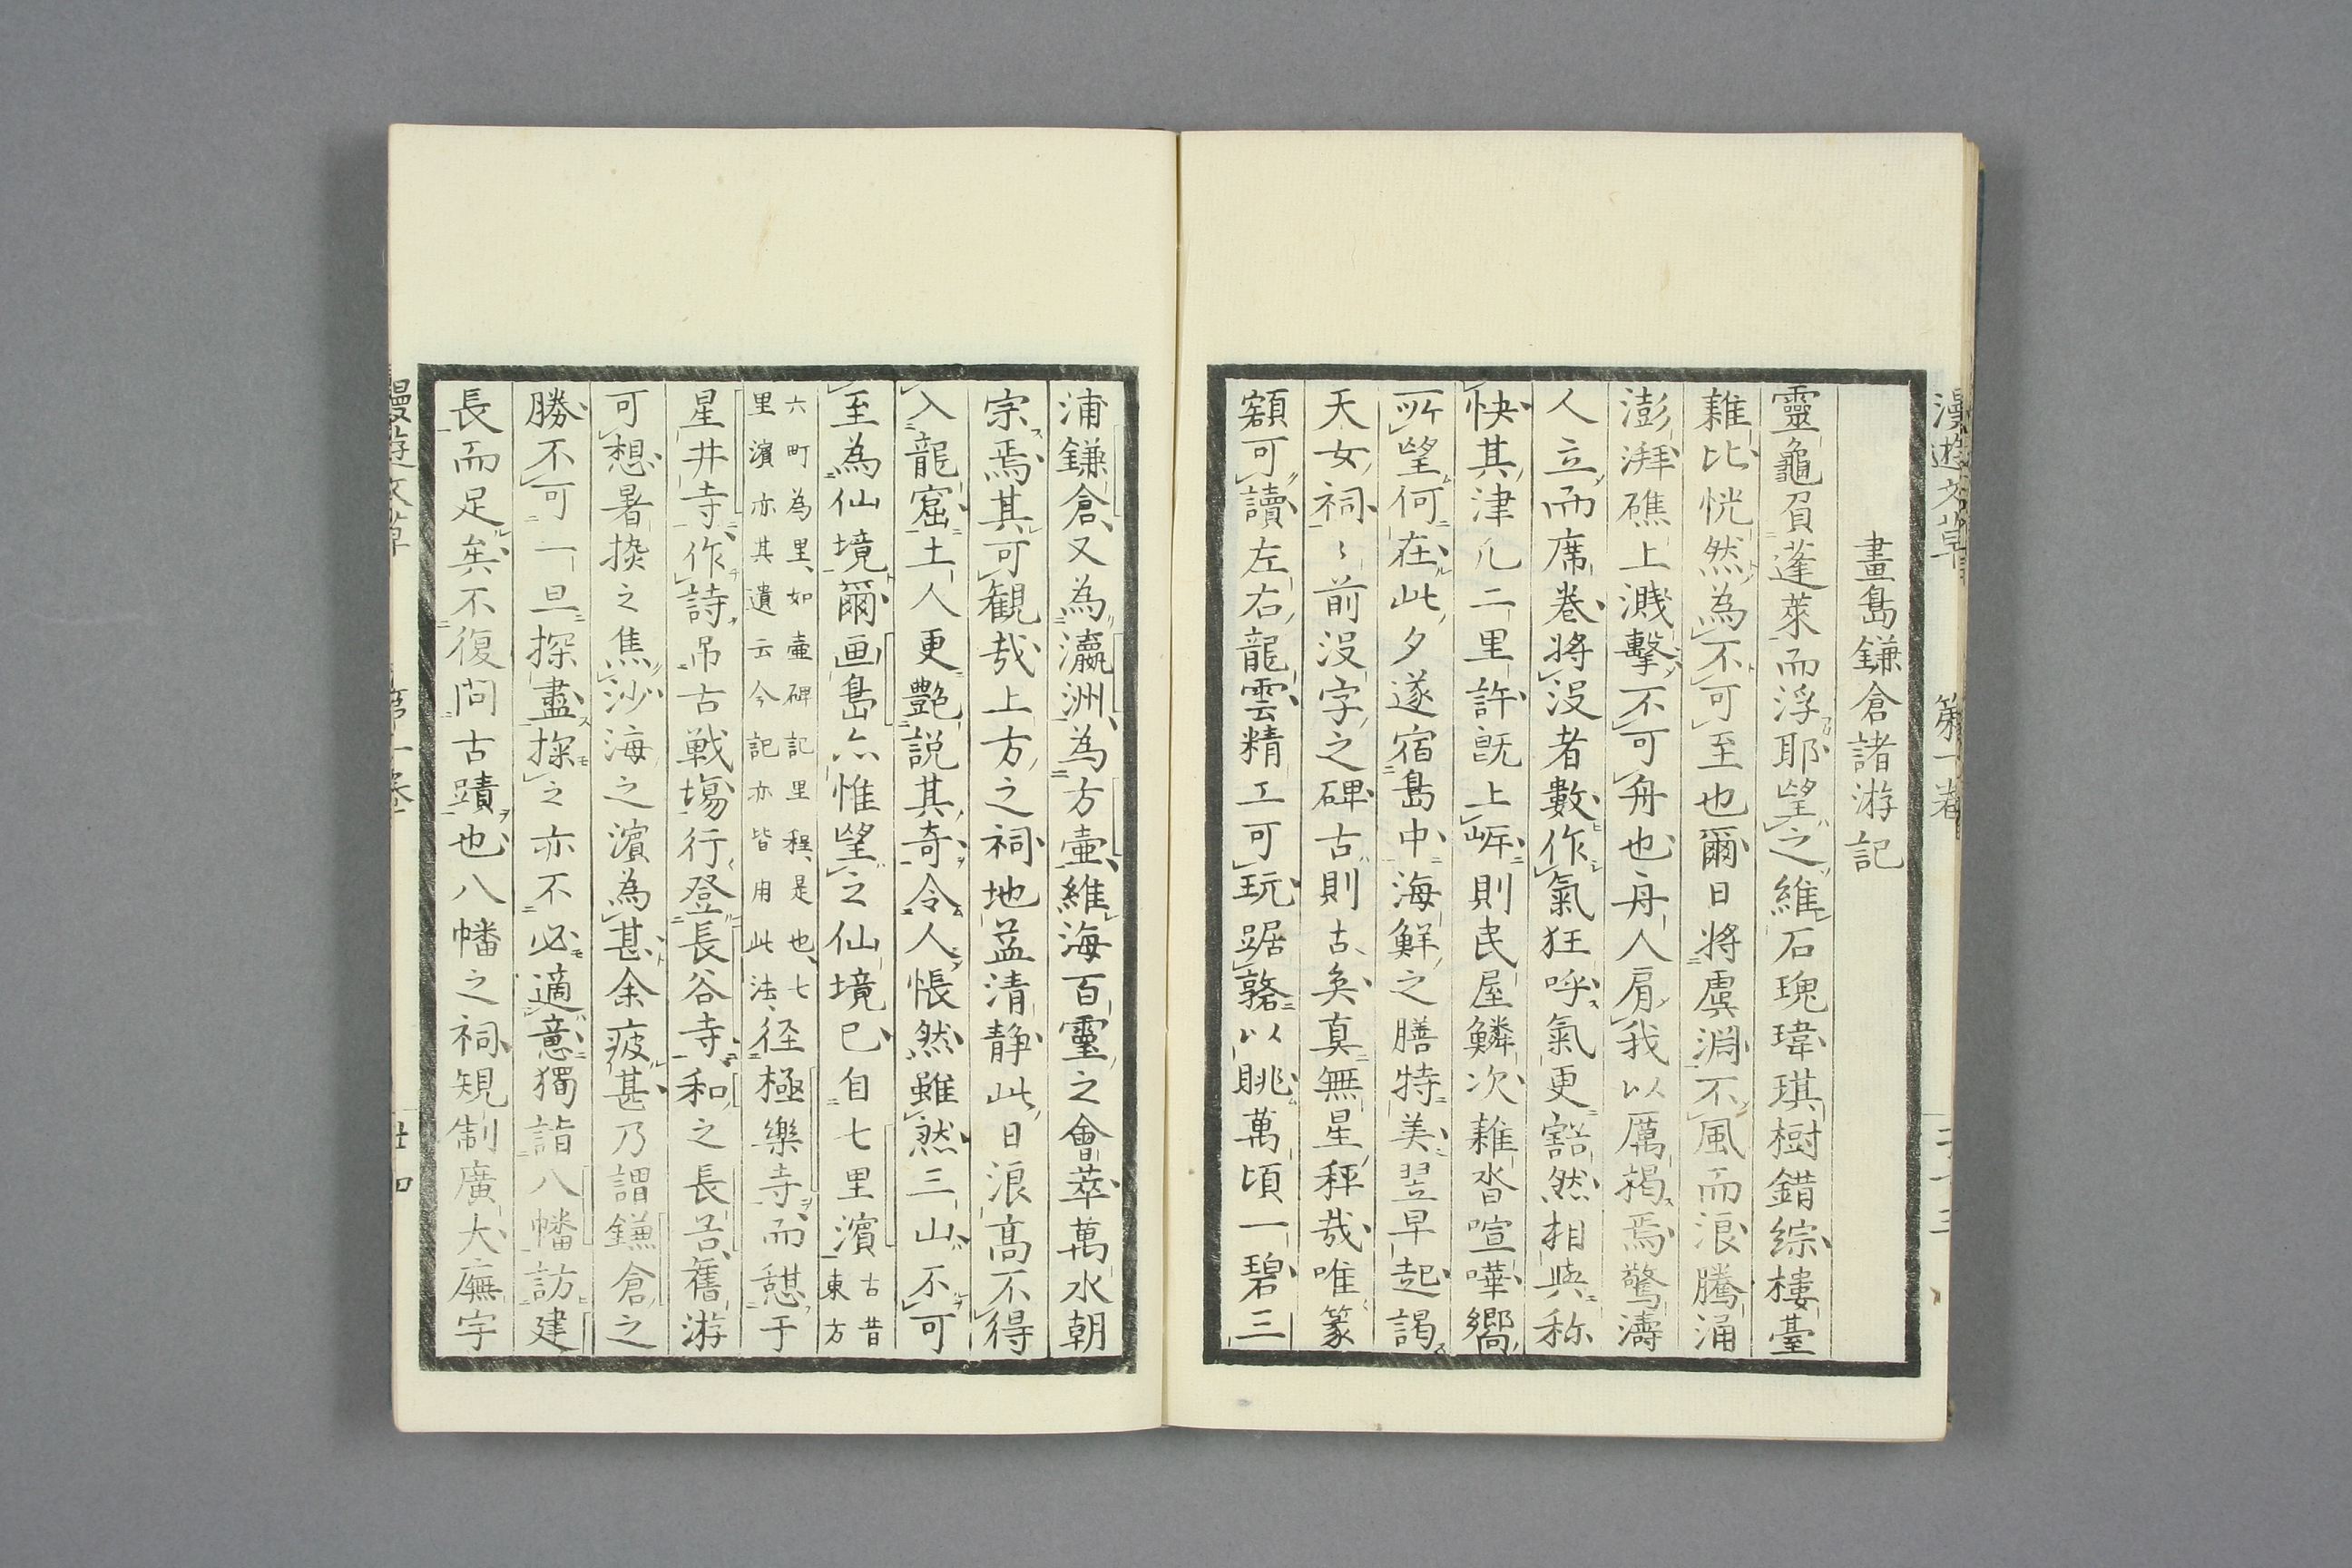 漫遊文草 第一卷
畫島鎌倉諸游記
靈龜負蓬萊而浮耶望之維石瑰瑋琪樹錯綜樓臺
雜比恍然為不可至也爾日將虞淵不風而浪騰涌
澎湃礁上濺擊不可舟也舟人肩我以厲褐焉驚濤
人立而席卷將没者數作氣狂呼氣更豁然相與称
快其津凢二里許既上岍則民屋鱗次雜沓喧嘩嚮
所望何在此夕遂宿島中海鮮之膳特美翌早起謁
天女祠〻前没字之碑古則古矣真無星秤哉唯篆
額可讀左右龍雲精工可玩踞以眺萬頃一碧三
浦鎌倉又為瀛洲為方壷維海百靈之會萃萬水朝
宗焉其可観哉上方之祠地益清静此日浪高不得
入龍窟土人更艶説其奇令人悵然雖然三山不可
至為仙境爾画島亦惟望之仙境已自七里濱古昔東方
六町為里如壷碑記里程是也七里濱亦其遺云今記亦皆用此法径極樂寺而憩于
星井寺作詩吊古戦塲行登長谷寺和之長谷舊游
可想暑換之焦沙海之濱為甚余疲甚乃謂鎌倉之
勝不可一旦探盡探之亦不必適意獨詣八幡訪建
長而足矣不復問古蹟也八幡之祠規制廣大廡宇
漫遊文草 第一卷